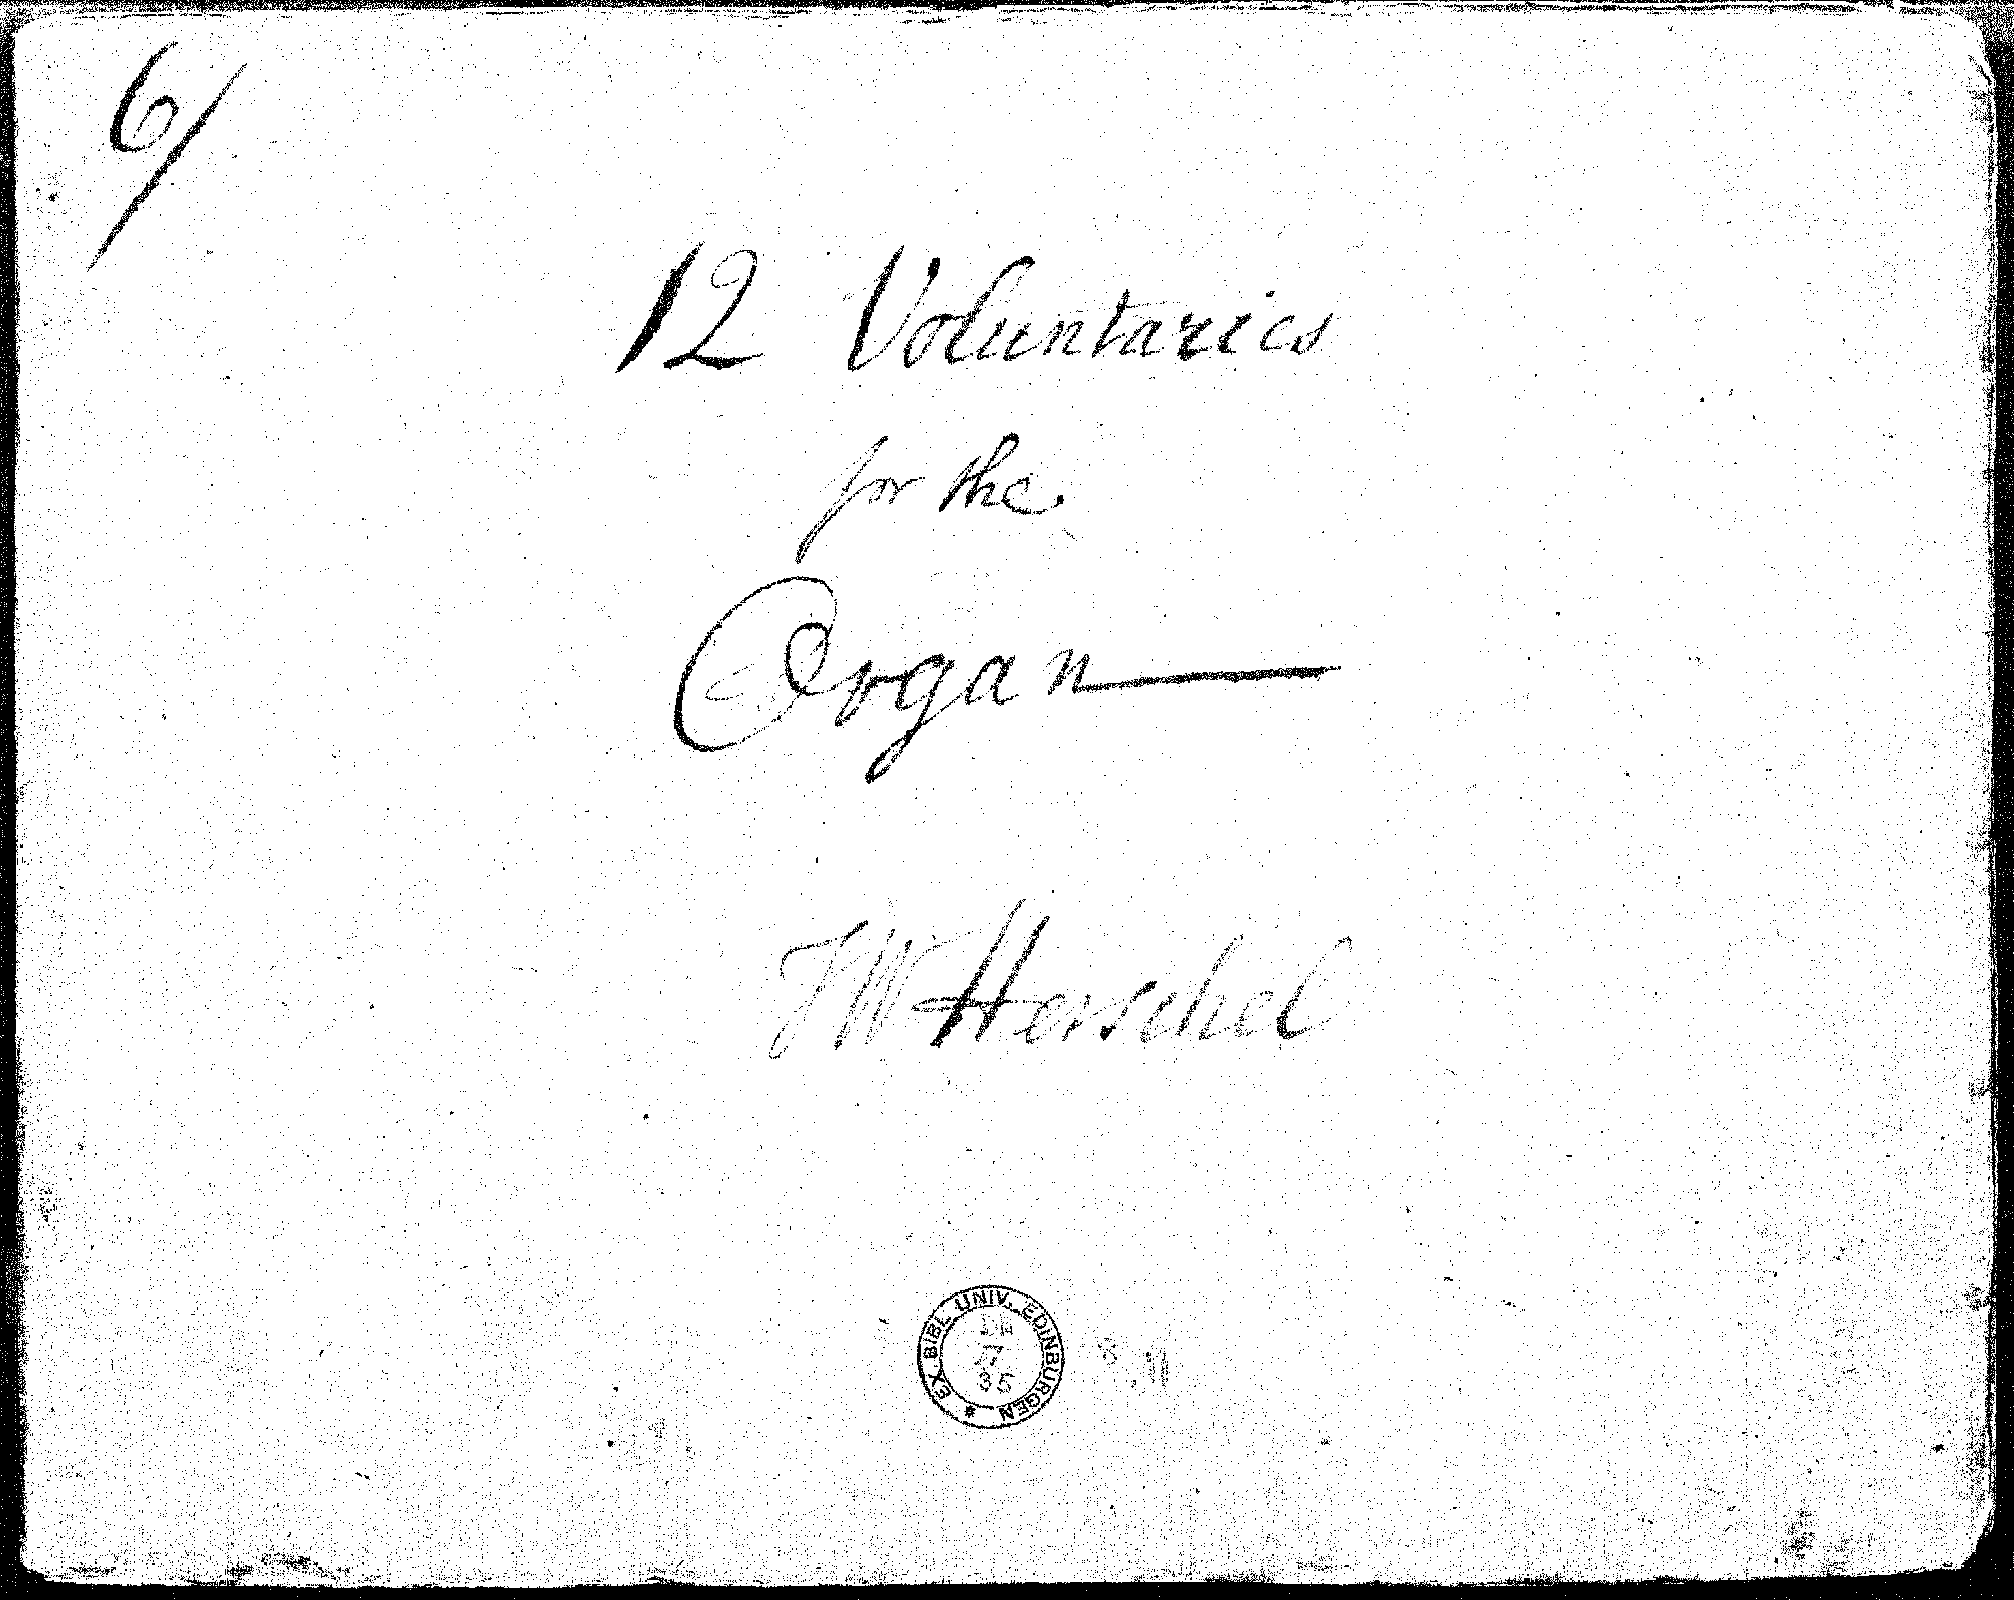 6/
12 Voluntaries
for the
Organ
FW Herschel
EX BIBL. UNIV. EDINBURGEN *
35